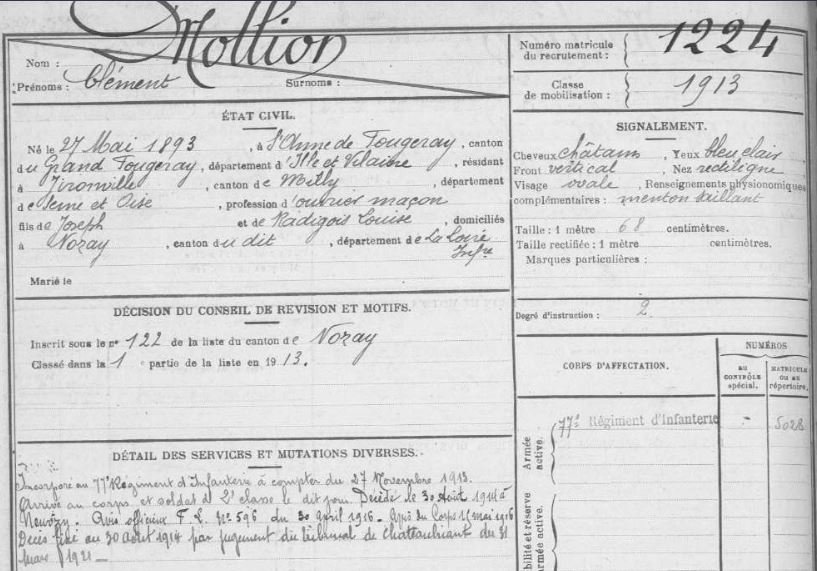 Mollion
Nom :
Prénoms : Clément Surnoms :
Numéro matricule
du recrutement : 1224
Classe
de mobilisation : 1913
ÉTAT CIVIL.
Né le 27 Mai 1893, à St Anne de Fougeray, canton
du Grand Fougeray, département d'Ille et Vilaine, résidant
à Tironville, canton de Milly, département
de Seine et Oise, profession d'ouvrier maçon
fils de Joseph et de Radigois Louise, domiciliés
à Nozay, canton du dit, département de La Loire
Infre
Marié le
SIGNALEMENT.
Cheveux châtains, Yeux bleu clair
Front vertical, Nez rectiligne
Visage ovale, Renseignements physionomiques
complémentaires : menton saillant
Taille : 1 mètre 68 centimètres.
Taille rectifiée : 1 mètre centimètres.
Marques particulières :
Degré d'instruction : 2
DÉCISION DU CONSEIL DE REVISION ET MOTIFS.
Inscrit sous le n° 122 de la liste du canton de Nozay
Classé dans la 1 e partie de la liste en 1913.
CORPS D'AFFECTATION.
NUMÉROS
AU
CONTRÔLE
spécial.
MATRICULE
OU AU
répertoire.
Armée
active.
77e Régiment d'Infanterie - 5028
bilité et réserve
armée active.
DÉTAIL DES SERVICES ET MUTATIONS DIVERSES.
Incorporé au 77e Régiment d'Infanterie à compter du 27 Novembre 1913.
Arrivé au corps et soldat de 2e classe le dit jour. Décédé le 30 Août 1914 à
Avis officieux F L. No 596 du 30 avril 1916. Avis du Corps 11 mai 1916
Décès fixé au 30 Août 1914 par jugement du tribunal de Chateaubriant du 31
Mars 1921